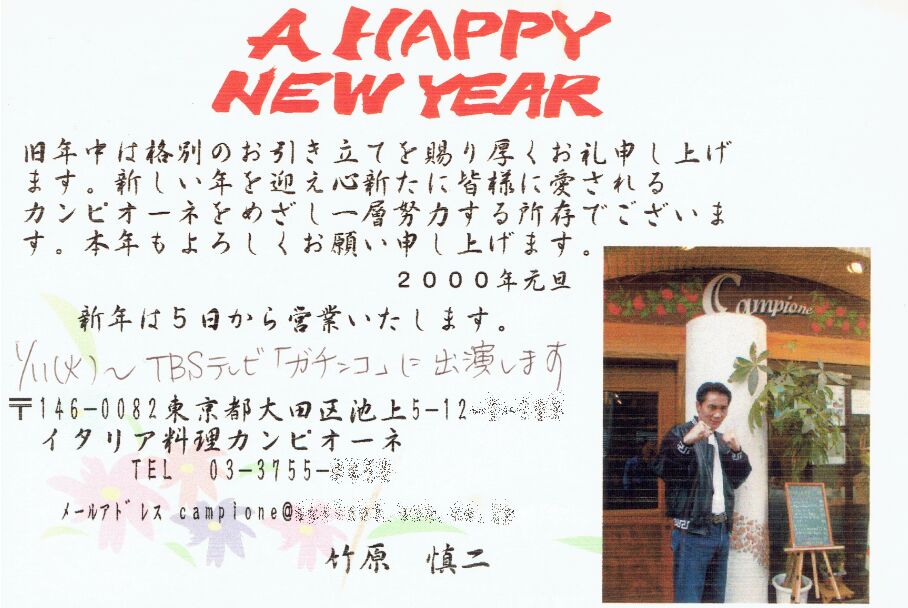 A HAPPY
NEW YEAR
旧年中は格別のお引き立てを賜り厚くお礼申し上げ
ます。新しい年を迎え心新たに皆様に愛される
カンピオーネをめざし一層努力する所存でございま
す。本年もよろしくお願い申し上げます。
2000年元旦
新年は5日から営業いたします。
1/11(火)～TBSテレビ「ガチンコ」に出演します
〒146-0082東京都大田区池上5-12
イタリア料理カンピオーネ
TEL 03-3755-
メールアドレス campione@
竹原 慎二
Campione